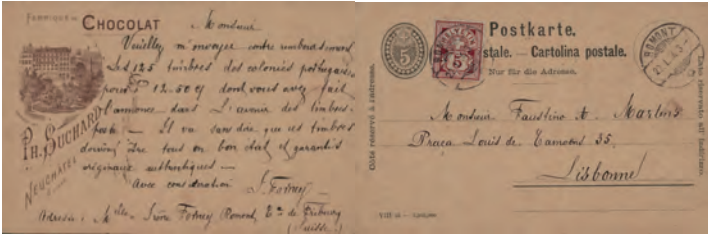 Fabrique de CHOCOLAT
PH. SUCHARD
NEUCHATEL
Monsieur
Veuillez m'envoyer contre remboursement
les 125 timbres des colonies portugaises
pour F 12-50 dont vous avez fait
l'annonce dans L'avenir des timbres-
poste — Il va sans dire que ces timbres
doivent être tous en bon état et garantis
originaux authentiques —
Avec considération
Adresse: Mlle Irène Forney Romont, Ct de Fribourg
(Suisse)
Postkarte.
stale. — Cartolina postale.
Nur für die Adresse.
5
5
ROMONT
Côté réservé à l'adresse.
Lato riservato all' indirizzo.
Monsieur Faustino A. Martins
Praça Louis de Camoens 35.
Lisbonne